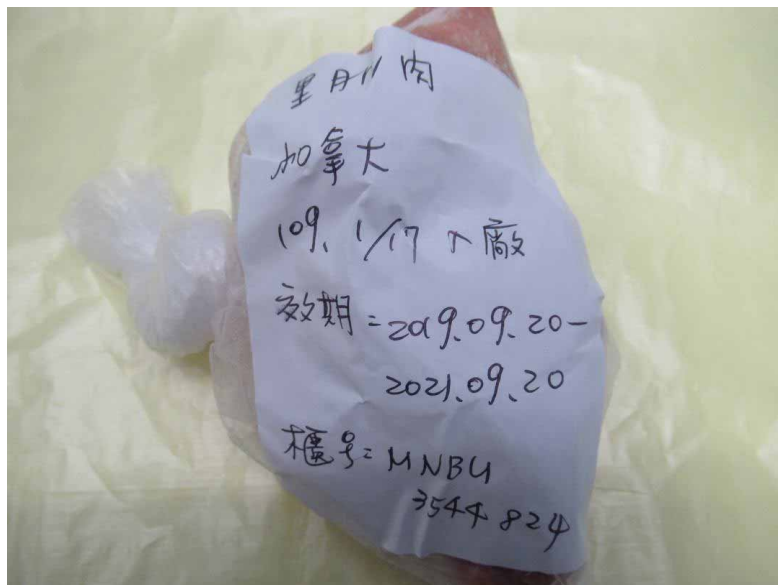 里肌肉
加拿大
109. 1/17 入廠
效期=2019.09.20-
2021.09.20
櫃号=MNBU
3544824